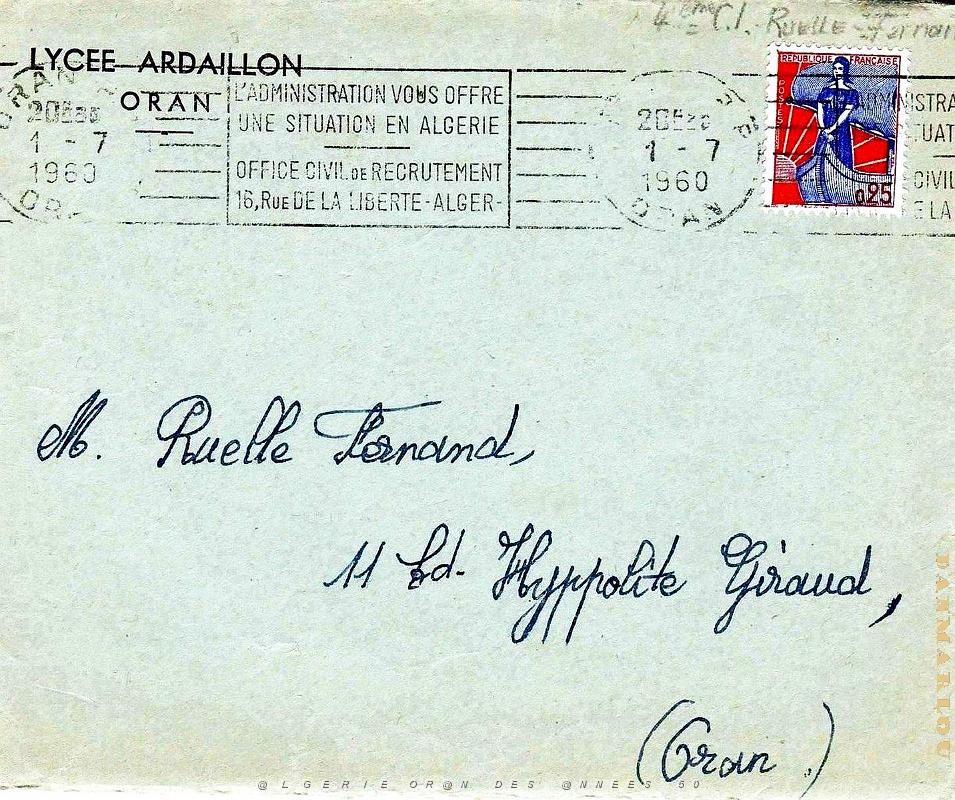 4ème C.I. Ruelle Fernan
LYCEE ARDAILLON
ORAN
ORAN
20H30
1 - 7
1960
ORAN
L'ADMINISTRATION VOUS OFFRE
UNE SITUATION EN ALGERIE
OFFICE CIVIL DE RECRUTEMENT
16, RUE DE LA LIBERTE-ALGER-
20H30
1 - 7
1960
ORAN
REPUBLIQUE FRANÇAISE
POSTES
0,25
ADMINISTRA
TUAT
CIVIL
E LA
M. Ruelle Fernand,
11 Bd. Hyppolite Giraud,
(Oran)
PAIMARLOU
@LGERIE OR@N DES @NNEES 50